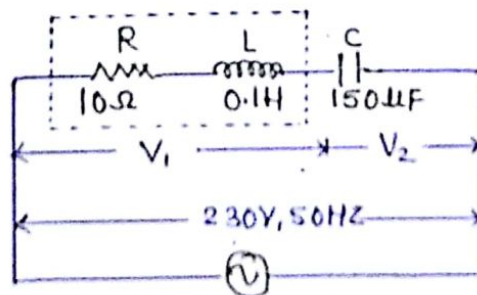 R L C
10Ω 0.1H 150µF
V₁ V₂
230V, 50HZ